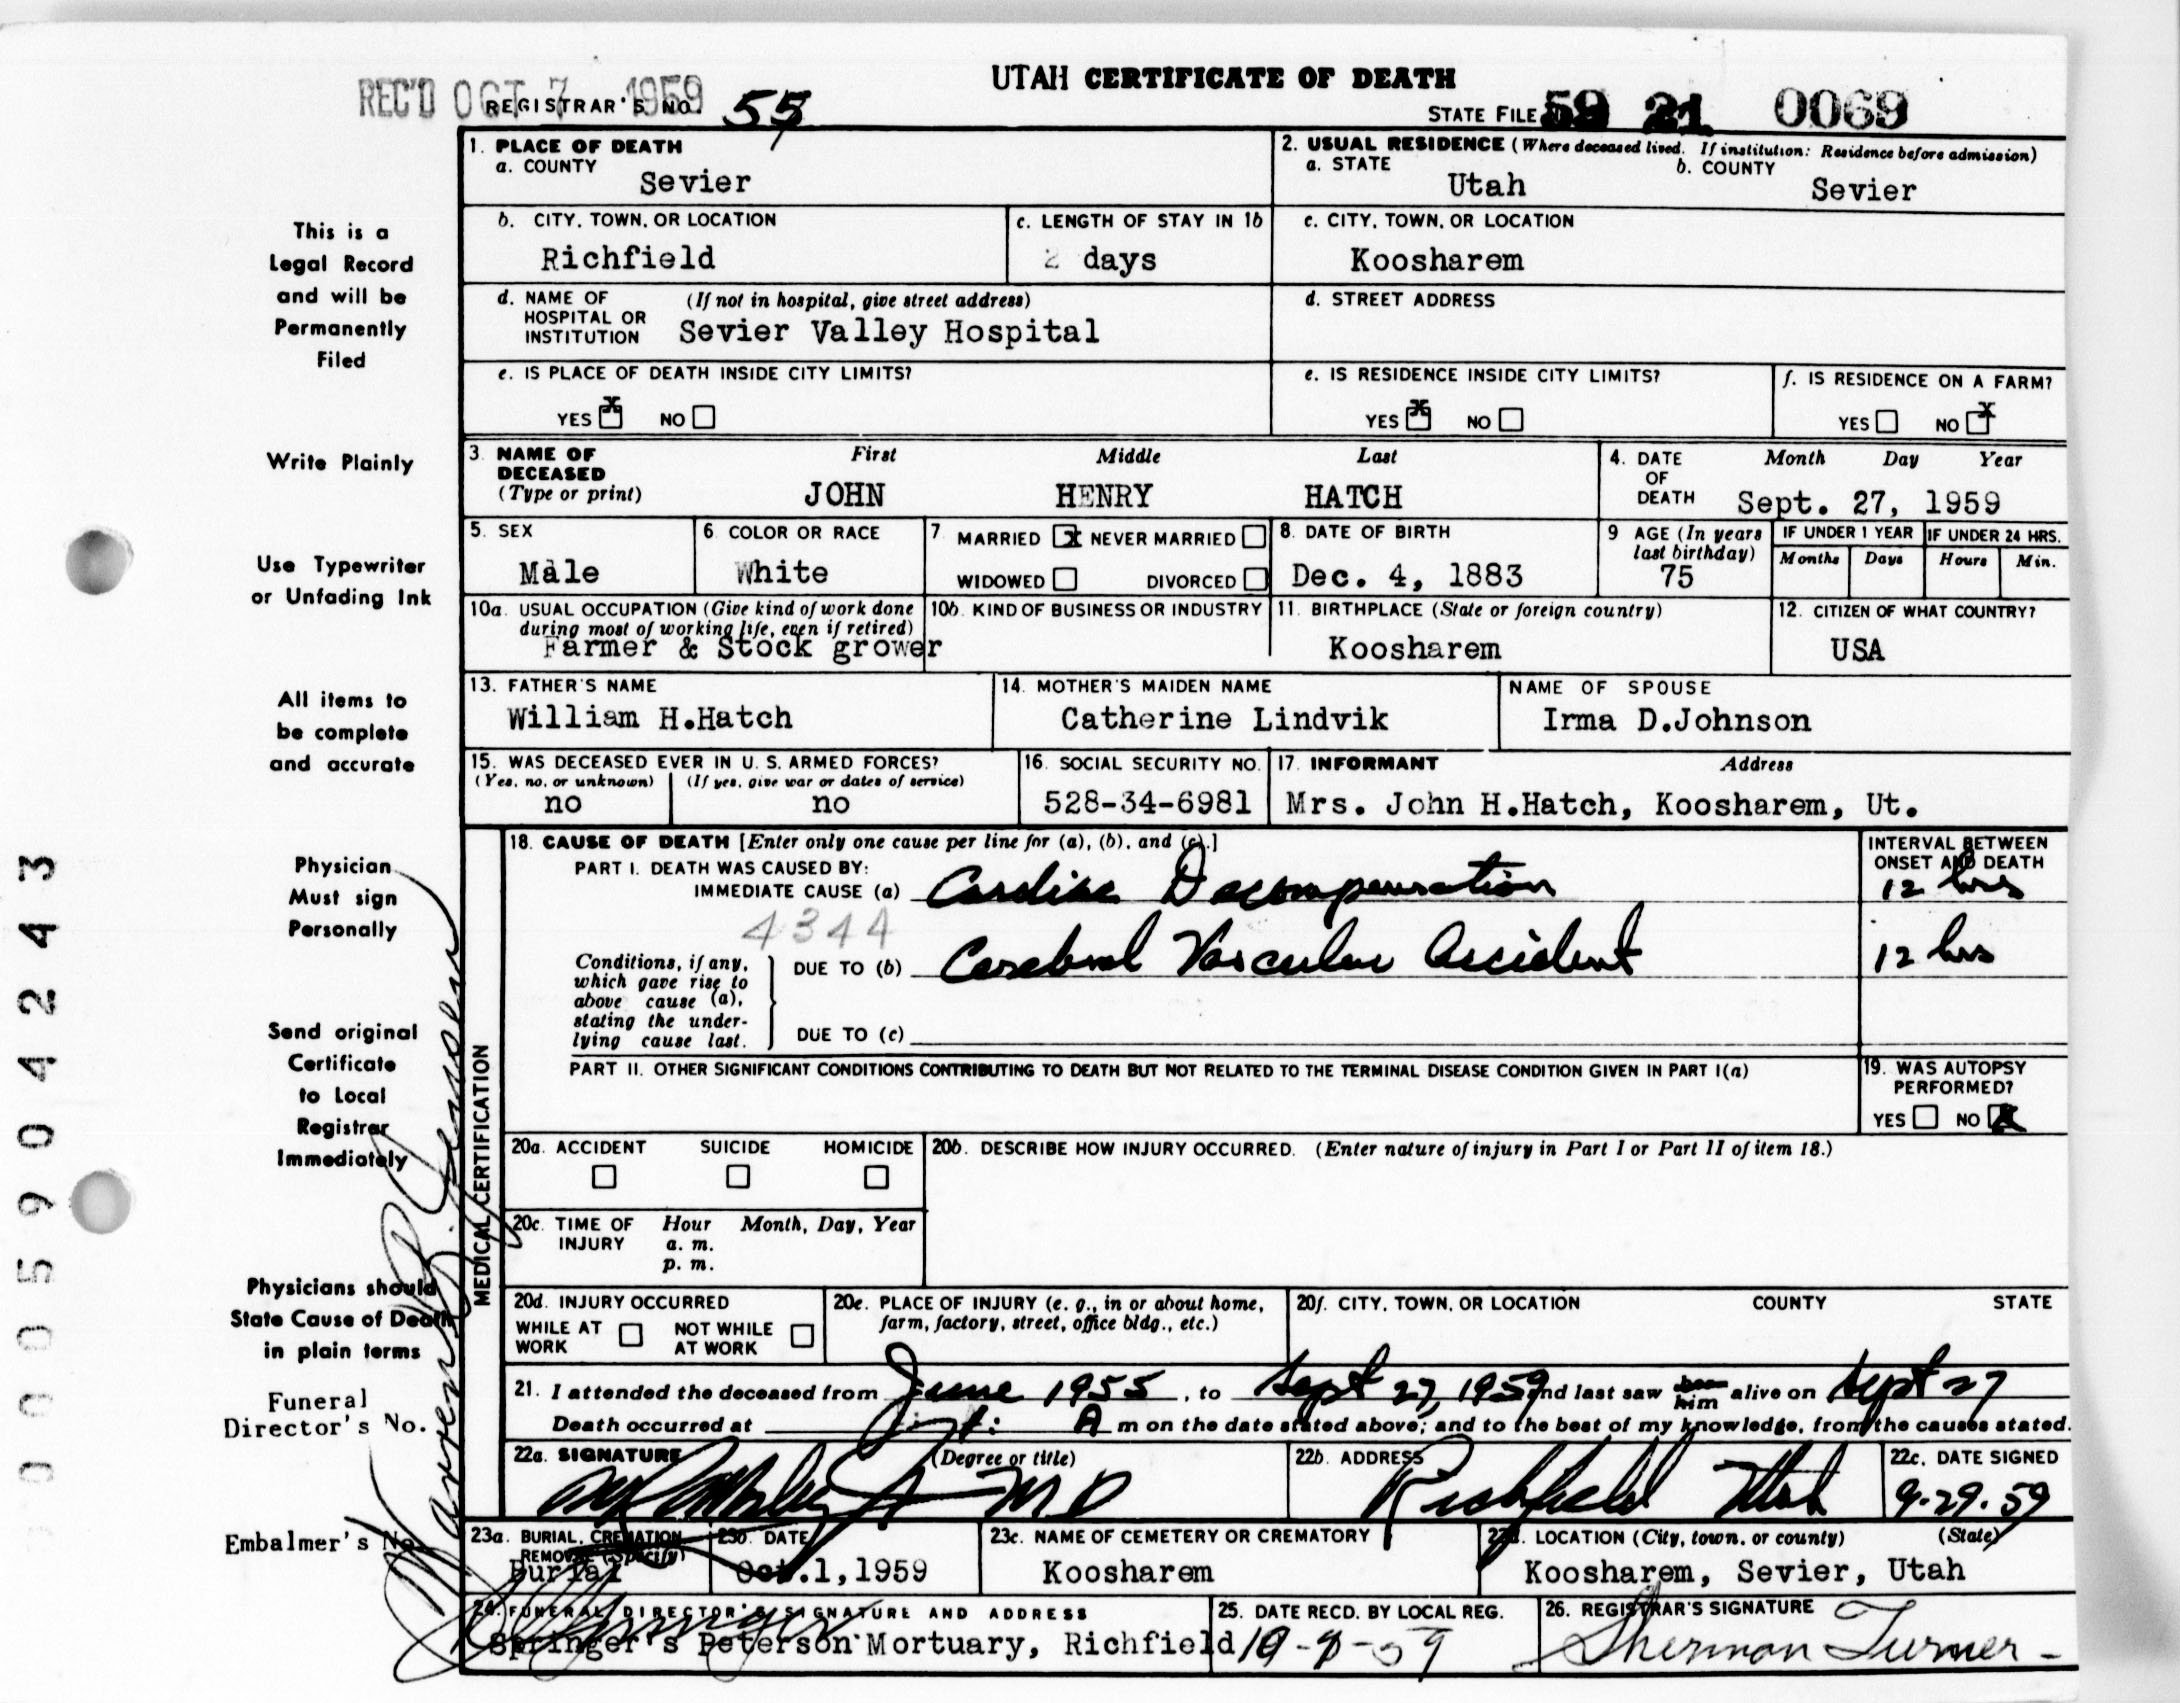 UTAH CERTIFICATE OF DEATH
REC'D OCT 7 1959
REGISTRAR'S NO. 55
STATE FILE 59 21 0069
1. PLACE OF DEATH
a. COUNTY
Sevier
2. USUAL RESIDENCE (Where deceased lived. If institution: Residence before admission)
a. STATE
Utah
b. COUNTY
Sevier
b. CITY, TOWN, OR LOCATION
Richfield
c. LENGTH OF STAY IN 1b
2 days
c. CITY, TOWN, OR LOCATION
Koosharem
d. NAME OF HOSPITAL OR INSTITUTION
(If not in hospital, give street address)
Sevier Valley Hospital
d. STREET ADDRESS
e. IS PLACE OF DEATH INSIDE CITY LIMITS?
YES X NO
e. IS RESIDENCE INSIDE CITY LIMITS?
YES X NO
f. IS RESIDENCE ON A FARM?
YES NO X
3. NAME OF DECEASED
(Type or print)
First Middle Last
JOHN HENRY HATCH
4. DATE OF DEATH
Month Day Year
Sept. 27, 1959
5. SEX
Male
6. COLOR OR RACE
White
7. MARRIED X NEVER MARRIED
WIDOWED DIVORCED
8. DATE OF BIRTH
Dec. 4, 1883
9. AGE (In years last birthday)
75
IF UNDER 1 YEAR
Months Days
IF UNDER 24 HRS.
Hours Min.
10a. USUAL OCCUPATION (Give kind of work done during most of working life, even if retired)
Farmer & Stock grower
10b. KIND OF BUSINESS OR INDUSTRY
11. BIRTHPLACE (State or foreign country)
Koosharem
12. CITIZEN OF WHAT COUNTRY?
USA
13. FATHER'S NAME
William H.Hatch
14. MOTHER'S MAIDEN NAME
Catherine Lindvik
NAME OF SPOUSE
Irma D.Johnson
15. WAS DECEASED EVER IN U. S. ARMED FORCES?
(Yes, no, or unknown)
no
(If yes, give war or dates of service)
no
16. SOCIAL SECURITY NO.
528-34-6981
17. INFORMANT Address
Mrs. John H.Hatch, Koosharem, Ut.
MEDICAL CERTIFICATION
18. CAUSE OF DEATH [Enter only one cause per line for (a), (b), and (c).]
PART I. DEATH WAS CAUSED BY:
IMMEDIATE CAUSE (a) Cardiac Decompensation
INTERVAL BETWEEN ONSET AND DEATH
12 hrs
4344
Conditions, if any, which gave rise to above cause (a), stating the underlying cause last.
DUE TO (b) Cerebral Vascular Accident
12 hrs
DUE TO (c)
PART II. OTHER SIGNIFICANT CONDITIONS CONTRIBUTING TO DEATH BUT NOT RELATED TO THE TERMINAL DISEASE CONDITION GIVEN IN PART I(a)
19. WAS AUTOPSY PERFORMED?
YES NO X
20a. ACCIDENT SUICIDE HOMICIDE
20b. DESCRIBE HOW INJURY OCCURRED. (Enter nature of injury in Part I or Part II of item 18.)
20c. TIME OF INJURY
Hour Month, Day, Year
a. m.
p. m.
20d. INJURY OCCURRED
WHILE AT WORK NOT WHILE AT WORK
20e. PLACE OF INJURY (e. g., in or about home, farm, factory, street, office bldg., etc.)
20f. CITY, TOWN, OR LOCATION COUNTY STATE
21. I attended the deceased from June 1955, to Sept 27, 1959 and last saw him alive on Sept 27
Death occurred at A m on the date stated above; and to the best of my knowledge, from the causes stated.
22a. SIGNATURE (Degree or title)
MD
22b. ADDRESS
Richfield Utah
22c. DATE SIGNED
9-29-59
23a. BURIAL, CREMATION REMOVAL (Specify)
Burial
23b. DATE
Oct.1,1959
23c. NAME OF CEMETERY OR CREMATORY
Koosharem
23d. LOCATION (City, town, or county) (State)
Koosharem, Sevier, Utah
24. FUNERAL DIRECTOR'S SIGNATURE AND ADDRESS
Springer's Peterson Mortuary, Richfield
25. DATE RECD. BY LOCAL REG.
26. REGISTRAR'S SIGNATURE
Sherman Turner
This is a
Legal Record
and will be
Permanently
Filed
Write Plainly
Use Typewriter
or Unfading Ink
All items to
be complete
and accurate
Physician
Must sign
Personally
Send original
Certificate
to Local
Registrar
Immediately
Physicians should
State Cause of Death
in plain terms
Funeral
Director's No.
Embalmer's No.
0005904243